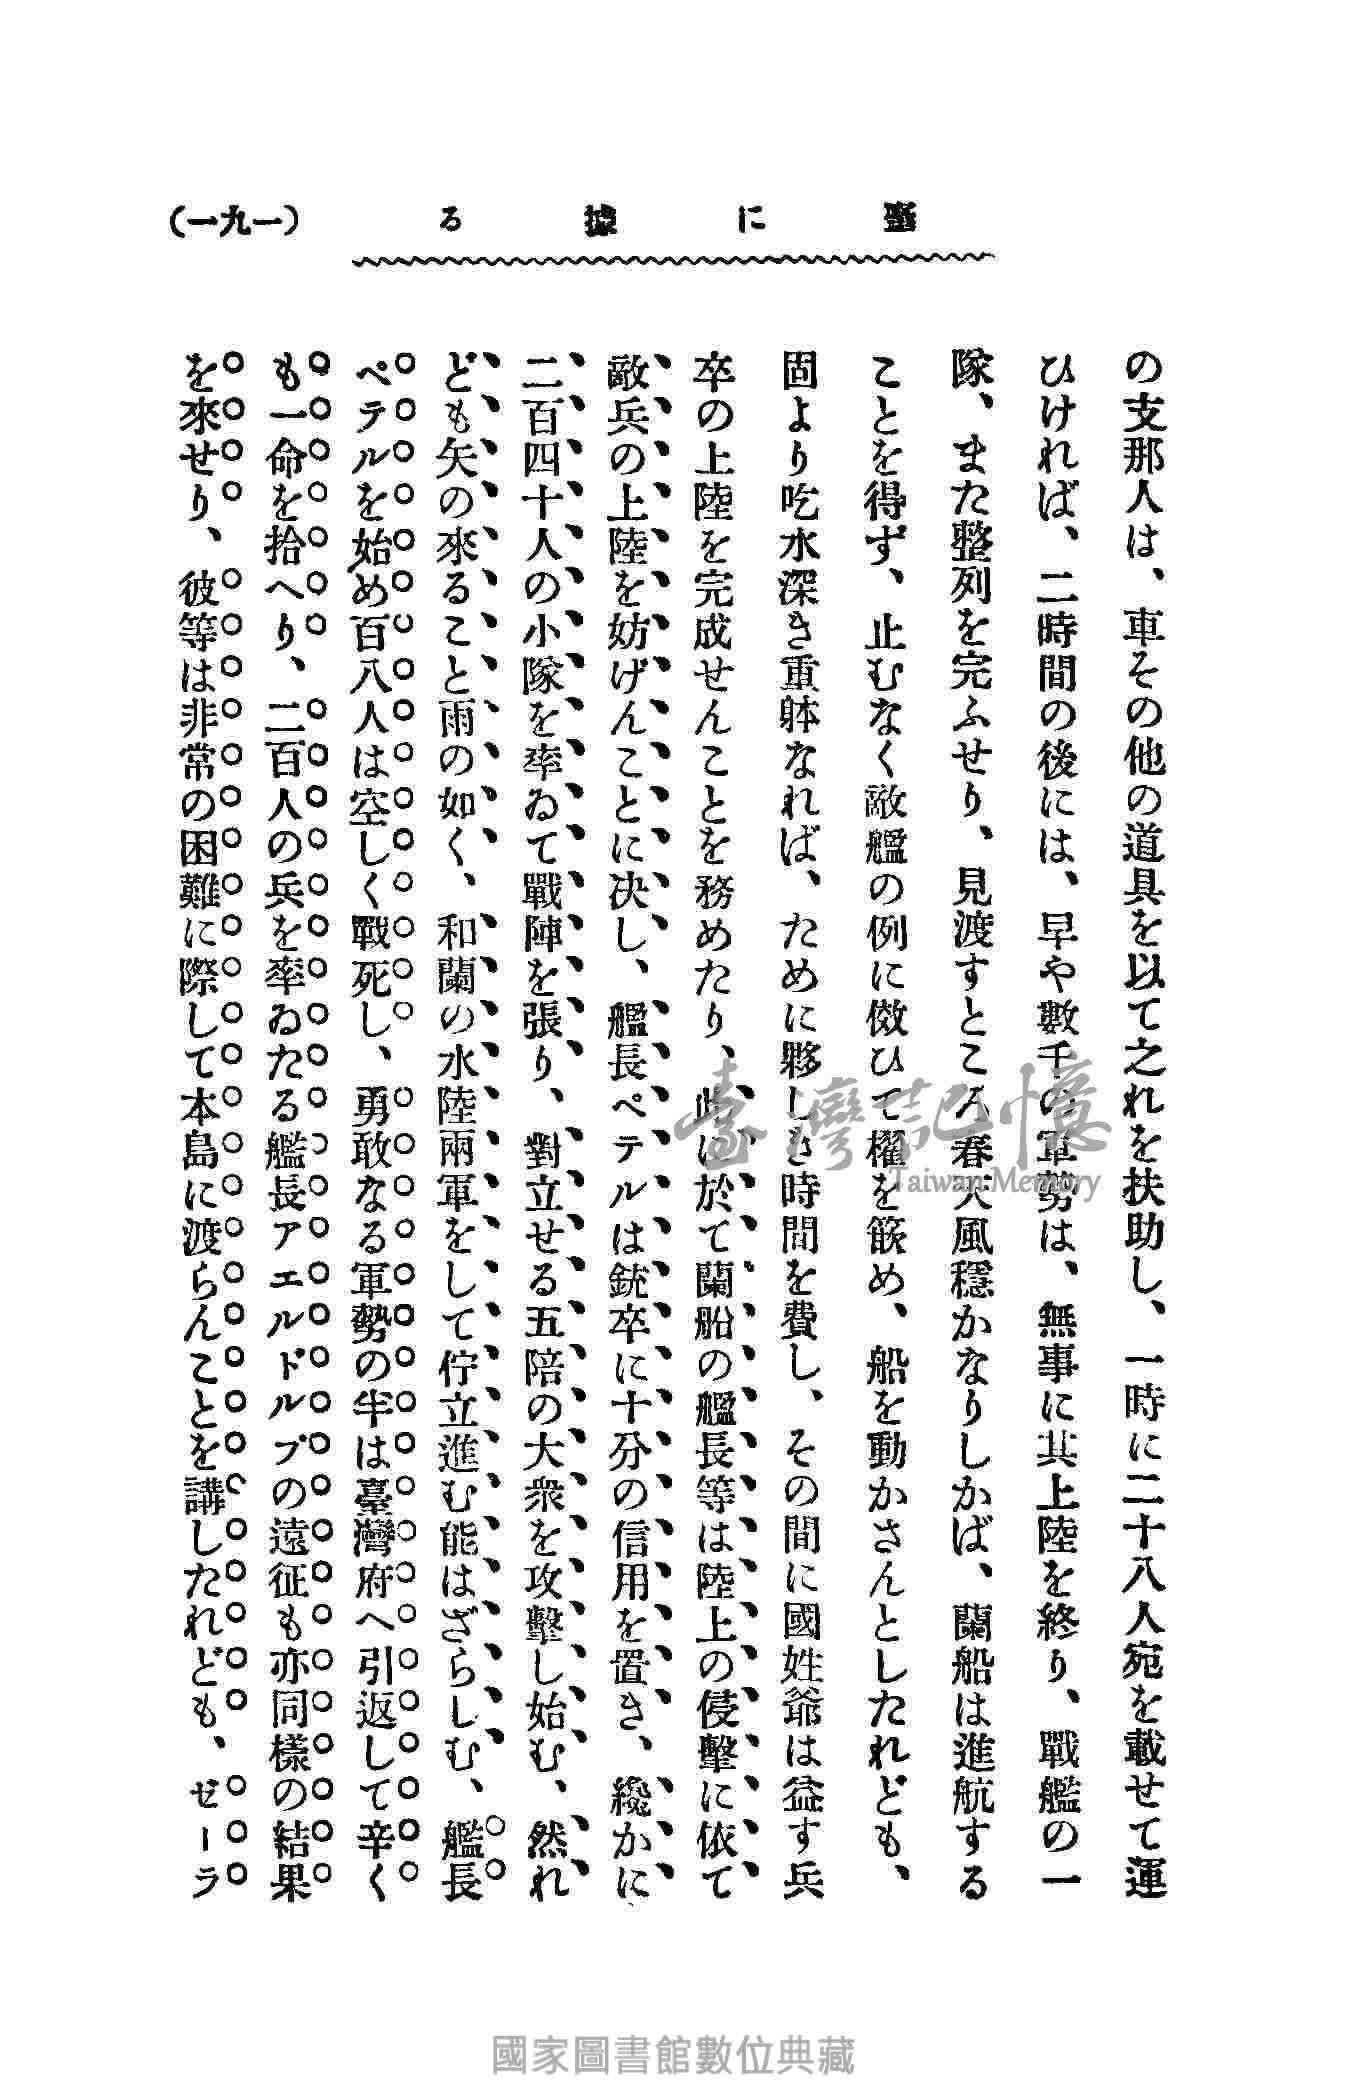 臺に據る
(一九一)
の支那人は、車その他の道具を以て之れを扶助し、一時に二十八人宛を載せて運
ひければ、二時間の後には、早や數千の軍勢は、無事に其上陸を終り、戰艦の一
隊、また整列を完ふせり、見渡すところ春天風穩かなりしかば、蘭船は進航する
ことを得ず、止むなく敵艦の例に傚ひて櫂を篏め、船を動かさんとしたれども、
固より吃水深き重躰なれば、ために夥しき時間を費し、その間に國姓爺は益す兵
卒の上陸を完成せんことを務めたり、此に於て蘭船の艦長等は陸上の侵擊に依て
敵兵の上陸を妨げんことに决し、艦長ペテルは銃卒に十分の信用を置き、纔かに
二百四十人の小隊を率ゐて戰陣を張り、對立せる五陪の大衆を攻擊し始む、然れ
ども矢の來ること雨の如く、和蘭の水陸兩軍をして佇立進む能はざらしむ、艦長
ペテルを始め百八人は空しく戰死し、勇敢なる軍勢の半は臺灣府へ引返して辛く
も一命を拾へり、二百人の兵を率ゐたる艦長アエルドルプの遠征も亦同樣の結果
を來せり、彼等は非常の困難に際して本島に渡らんことを講したれども、ゼーラ
臺灣記憶
Taiwan Memory
國家圖書館數位典藏